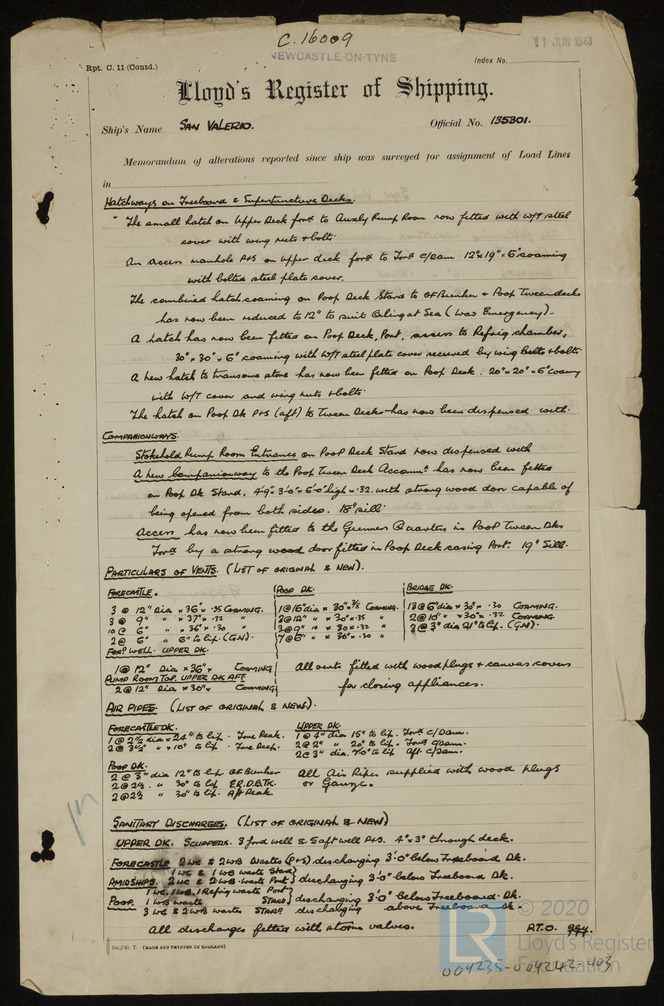 C.16009
NEWCASTLE-ON-TYNE
11 JUN 1943
Rpt. C. 11 (Contd.)
Index No.
Lloyd's Register of Shipping.
Ship's Name SAN VALERIO. Official No. 135301.
Memorandum of alterations reported since ship was surveyed for assignment of Load Lines
in
Hatchways on Freeboard & Superstructure Decks.
The small hatch on Upper Deck for'd to Auxly Pump Room now fitted with W/T steel
cover with wing nuts & bolts.
An access manhole P&S on upper deck for'd to For'd C/Dam 12"x19" x 6" coaming
with bolted steel plate cover.
The combined hatch coaming on Poop Deck Starb'd to OF Bunker & Poop Tween decks
has now been reduced to 12" to suit Oiling at Sea (Was Emergency).
A hatch has now been fitted on Poop Deck, Port, access to Refrig chamber,
30" x 30" x 6" coaming with W/T steel plate cover secured by wing bolts & bolts.
A new hatch to transome store has now been fitted on Poop Deck. 20" x 20" x 6" coamg
with W/T cover and wing nuts & bolts.
The hatch on Poop Dk P&S (aft) to Tween Decks has now been dispensed with.
COMPANIONWAYS.
Stokehold Pump Room Entrance on Poop Deck Starb'd now dispensed with
A new Companionway to the Poop Tween Deck Accomn. has now been fitted
on Poop Dk Starb'd. 4'9" x 3'0" x 6'0" high x .32. with strong wood door capable of
being opened from both sides. 18" sill.
Access has now been fitted to the Gunners Quarters in Poop Tween Dks
For'd by a strong wood door fitted in Poop Deck casing Port. 19" Sill.
PARTICULARS OF VENTS. (LIST OF ORIGINAL & NEW).
FORECASTLE. POOP DK. BRIDGE DK.
3 @ 12" Dia x 36" x .35 COAMING. 1 @ 16" dia x 30" x 3/8 COAMING. 13 @ 6" dia x 30" x .30 COAMING.
3 @ 9" " x 37" x .32 " 8 @ 12" " x 30" x .35 " 2 @ 10" " x 30" x .32 COAMING
10 @ 6" " x 36" x .30 " 3 @ 9" " x 30 x .32 " 3 @ 3" dia 21" to lip. (GN).
2 @ 6" " 6" to lip. (GN). 7 @ 6" " x 36" x .30 "
FOR'D WELL. UPPER DK.
1 @ 12" Dia x 36" x COAMING All vents fitted with wood plugs & canvas covers
PUMP ROOM TOP. UPPER DK AFT
2 @ 12" DIA x 30" x COAMING for closing appliances.
AIR PIPES. (LIST OF ORIGINAL & NEW).
FORECASTLE DK. UPPER DK.
1 @ 2½ dia x 24" to lip. Fore Peak. 1 @ 4" dia 15" to lip. For'd C/Dam.
2 @ 3½" " x 10" to lip. Fore Deep. 2 @ 2" " 20" to lip. For'd C/Dam.
2 @ 3" dia. to lip Aft. C/Dam.
POOP DK.
2 @ 3" dia 12" to lip OF Bunker All Air Pipes supplied with wood plugs
2 @ 2½. " 30" to lip E.R.D.B.TK. or Gauze.
2 @ 2½ " 30" to lip. Aft Peak
SANITARY DISCHARGES. (LIST OF ORIGINAL & NEW)
UPPER DK. SCUPPERS. 3 ford well & 5 aft well P&S. 4" x 3" through deck.
FORECASTLE 2 WC & 2 WB Wastes (P&S) discharging 3'0" below Freeboard Dk.
1 WC & 1 WB Waste Starb'd
AMIDSHIPS. 2 WC & 2 WB Waste Port discharging 3'0" below Freeboard Dk.
1 WC, 1 WB, 1 Refrig waste Port
POOP. 1 WB waste STARB'D discharging 3'0" below Freeboard Dk.
3 WC & 2 WB wastes STARB'D discharging above Freeboard Dk
All discharges fitted with storm valves. A.T.O.
(MADE AND PRINTED IN ENGLAND)
© 2020
LR
Lloyd's Register
Foundation
004235-004242-403